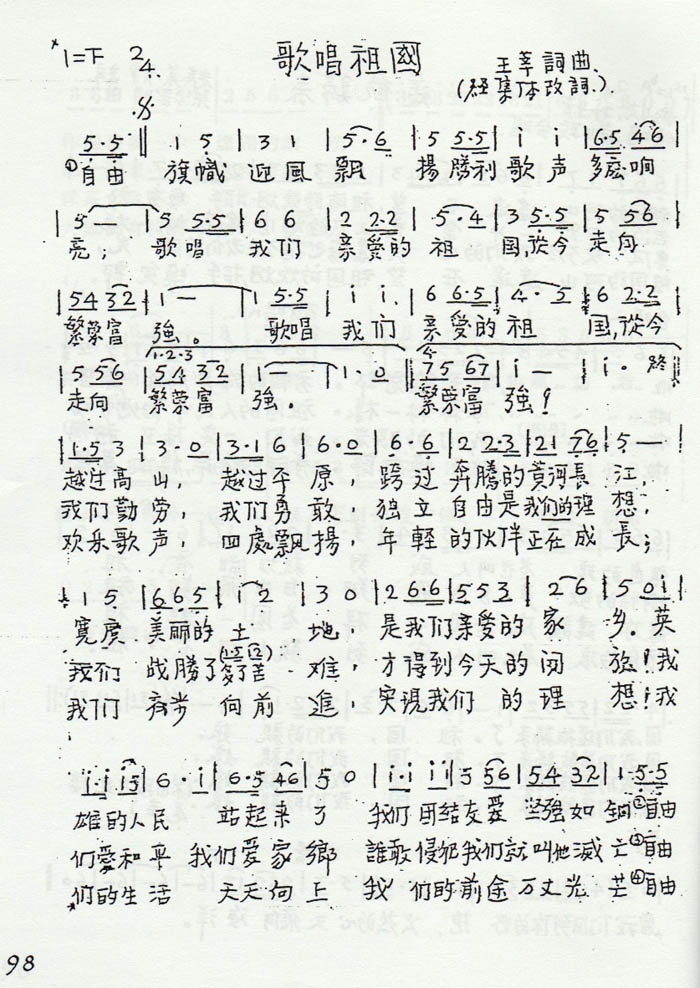 1=下 2/4 歌唱祖國 王莘詞曲、
(經集体改詞.).
5·5 ‖ 1 5 | 3 1 | 5·6 | 5 5·5 | i i | 6·5 46 |
①自由 旗幟 迎風 飄 揚勝利 歌声 多麼响
| 5 — | 5 5·5 | 6 6 | 2 2·2 | 5·4 | 3 5·5 | 5 56 |
亮; 歌唱 我们 亲愛的 祖 国,從今 走向
| 54 32 | 1 — | 1 5·5 | i i. | 6 6·5 | 4·5 | 6 2·2 |
繁荣富 強。 歌唱 我们 亲愛的 祖 国,從今
1·2·3 4
| 5 56 | 54 32 | 1 — | 1·0 | 75 67 | i — | i· 終 ‖
走向 繁荣富 強。 繁荣富 強!
| 1·5 3 | 3·0 | 3·1 6 | 6·0 | 6·6 | 2 2·3 | 21 76 | 5 — |
越过高 山, 越过平 原, 跨 过 奔騰的 黄河長 江,
我们勤 劳, 我们勇 敢, 独 立 自由是 我们的理 想,
欢乐歌 声, 四處飄 揚, 年 輕 的伙伴 正在成 長;
1 5 | 6 6 5 | 1 2 | 3 0 | 2 6·6 | 5 5 3 | 2 6 | 5 0 i |
寬廣 美丽的 土 地, 是我们 亲愛的 家 乡。英
我们 战勝了 多苦 难, 才得到 今天的 闭 放!我
我们 向前 進, 实現我们 的 理 想!我
| i·i i5 | 6·i | 6·5 46 | 5 0 | i·i ii | 5 56 | 54 32 | 1·5·5 |
雄的人民 站起来 了 我们 团结友愛 坚強如 鋼②自由
们愛和平 我们愛家 鄉 誰敢侵犯我们就叫他滅 亡③自由
们的生活 天天向上 我 们的前途万丈光 芒④自由
98